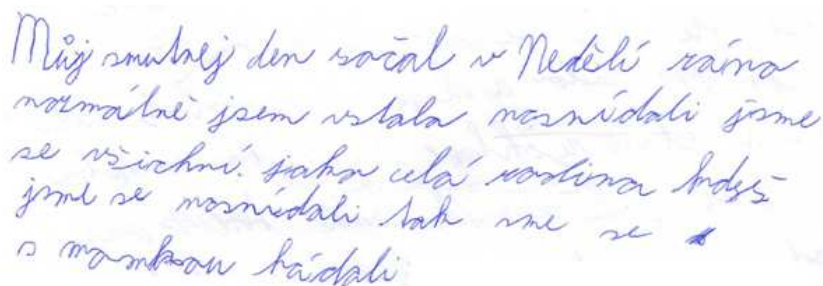 Můj smutnej den začal v Neděli ráno
normálně jsem vstala nasnídali jsme
se všichni. jako celá rodina když
jsme se nasnídali tak sme se
s mamkou hádali